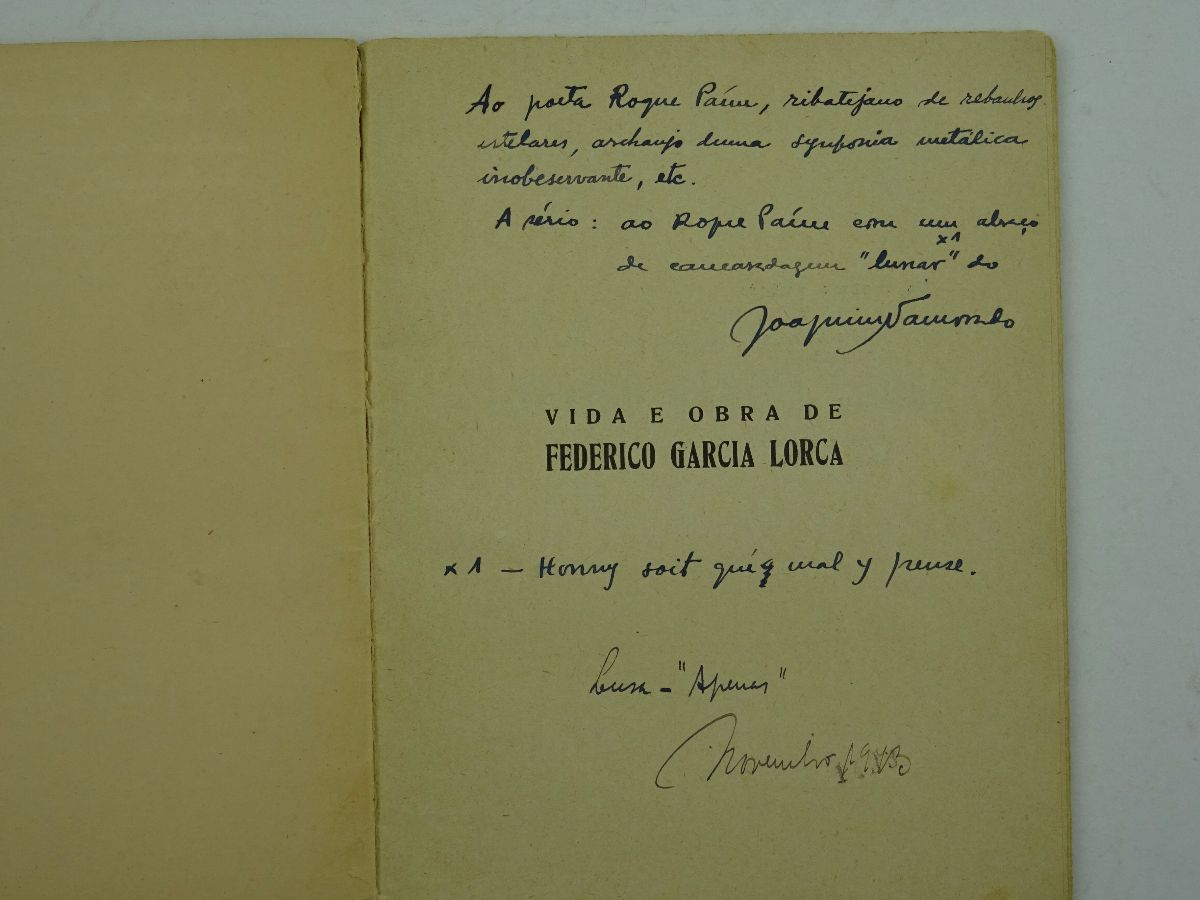 Ao poeta Roque Paím, ribatejano de rebanhos
estelares, archanjo duma synfonia metálica
inobeservante, etc.
A sério: ao Roque Paím com um abraço
de camaradagem "lunar" x1 do
Joaquim Namorado
VIDA E OBRA DE
FEDERICO GARCIA LORCA
x 1 — Honny soit qui mal y pense.
"Apenas"
Novembro 1943